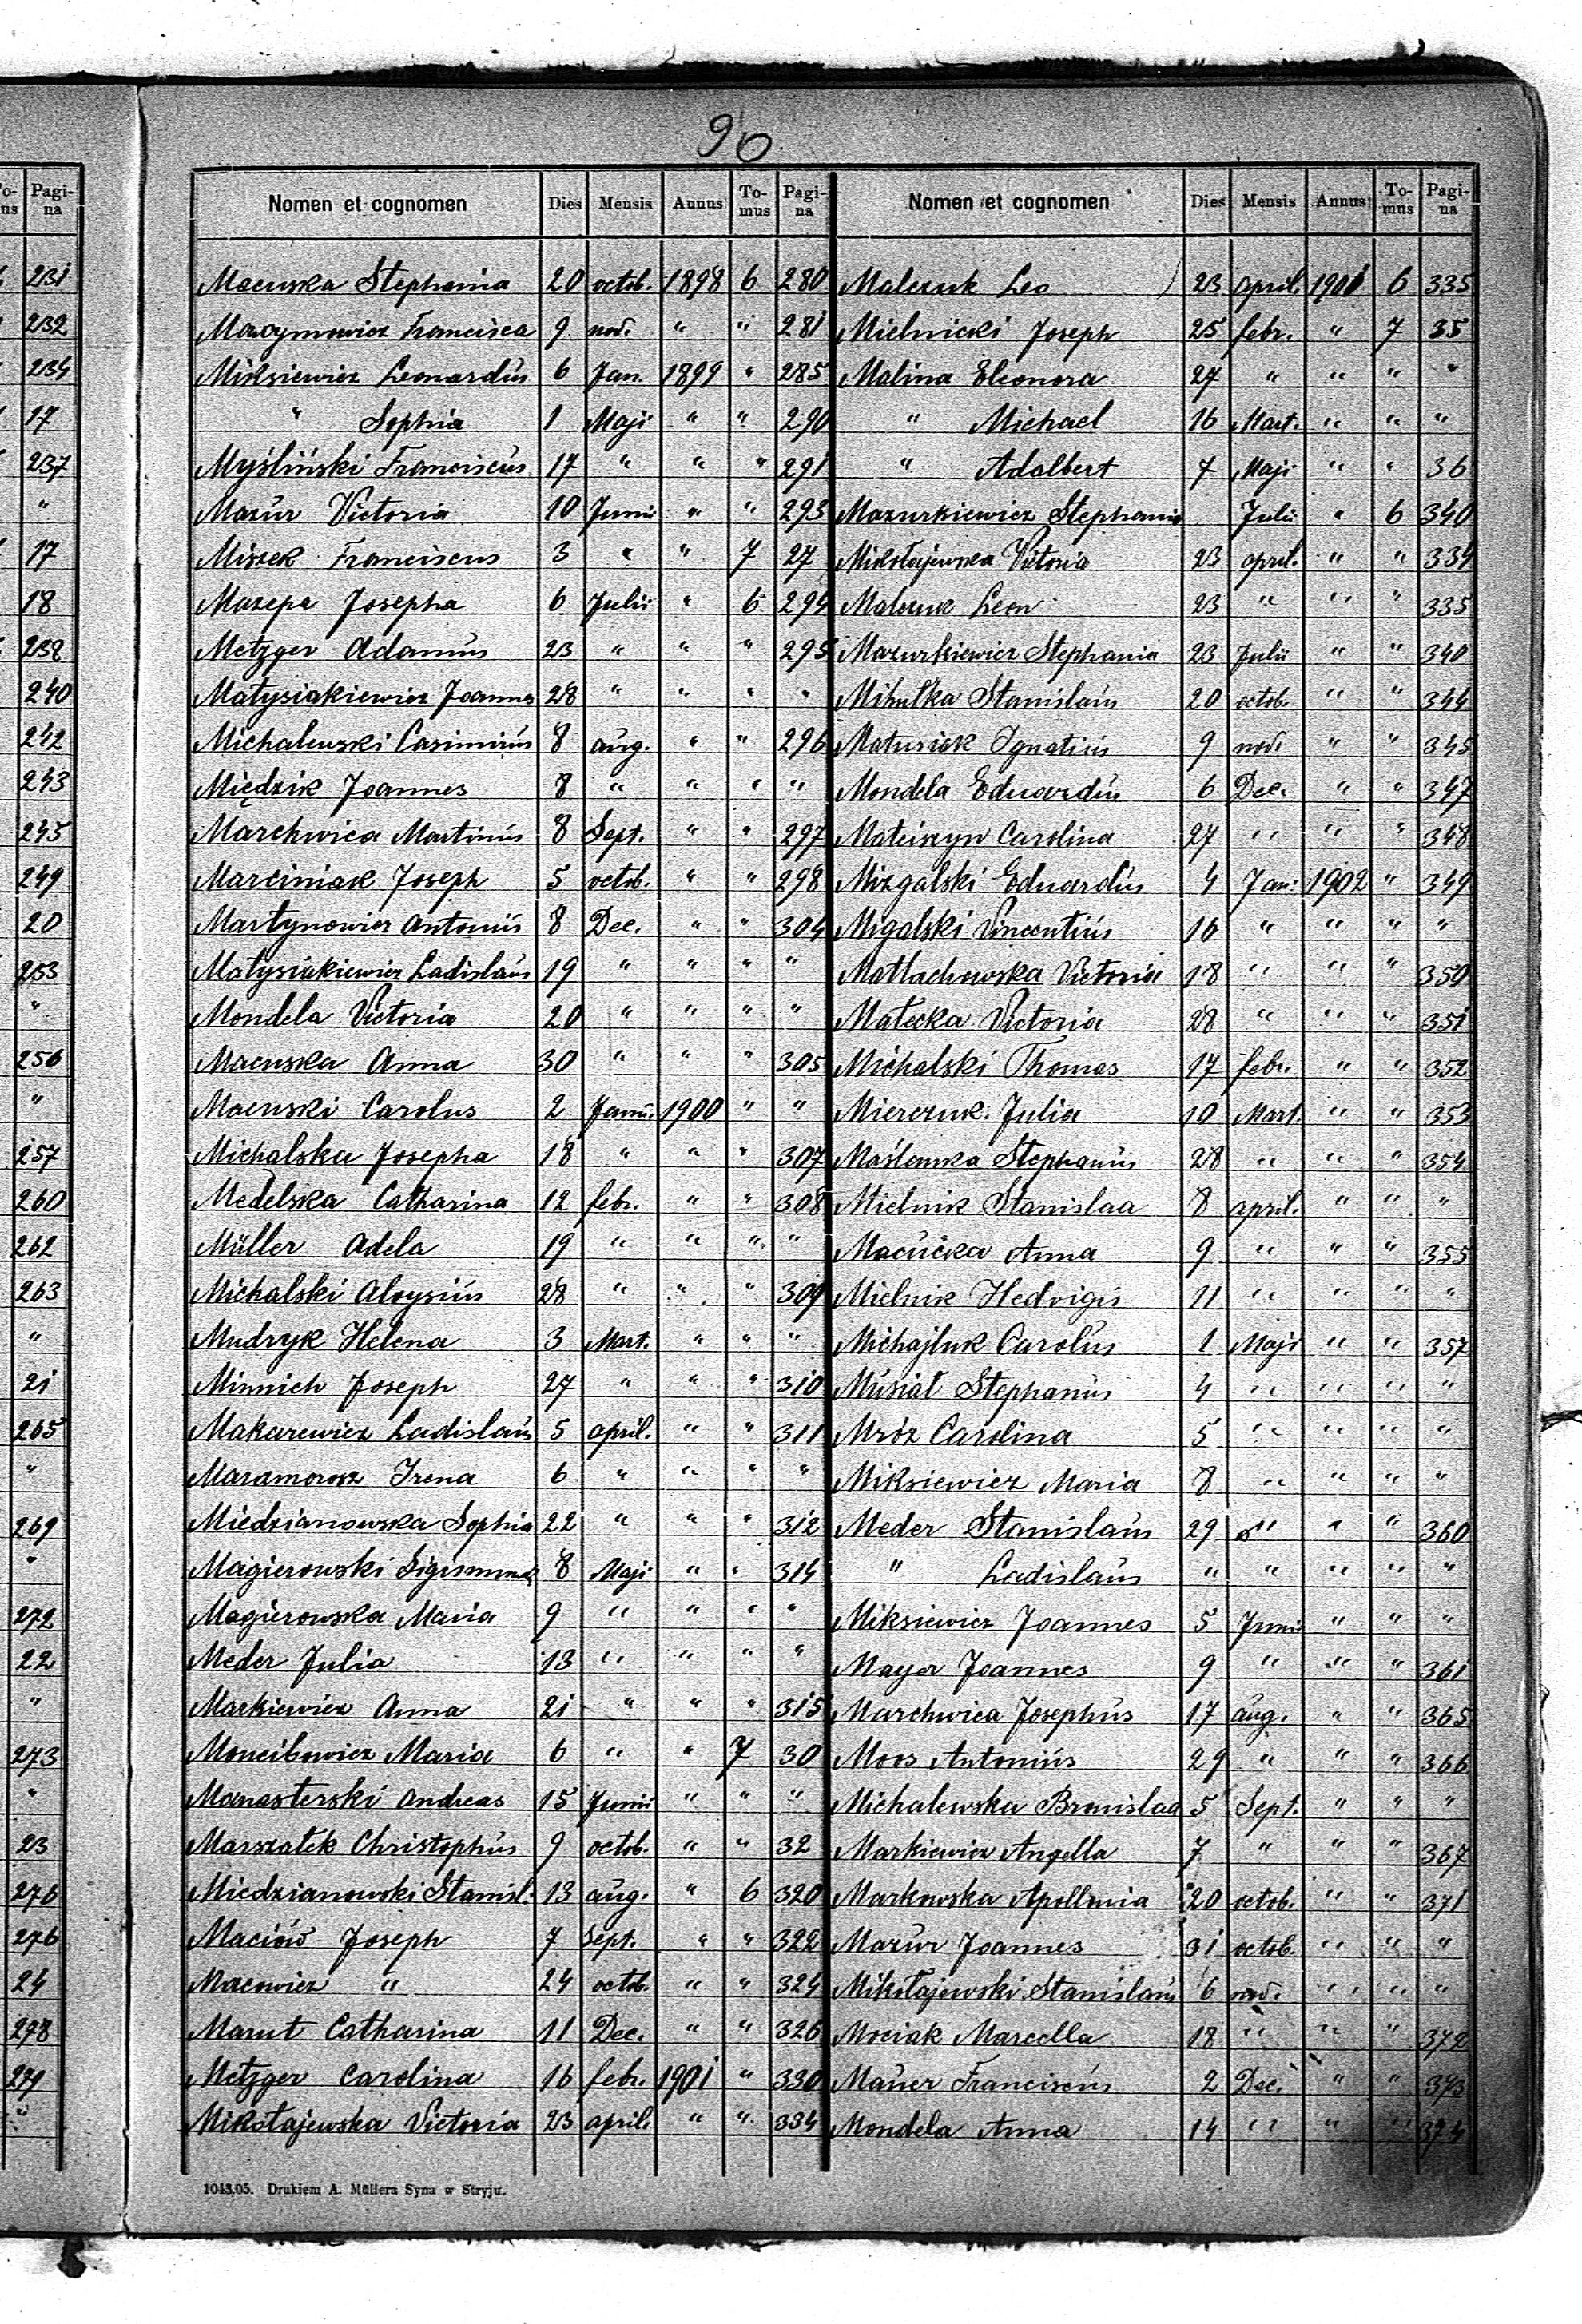 96
To-mus Pagi-na
231
232
234
17
237
"
17
18
238
240
242
243
245
249
20
253
"
256
"
257
260
262
263
"
21
265
"
269
"
272
22
"
273
"
23
276
276
24
278
279
"
Nomen et cognomen Dies Mensis Annus To-mus Pagi-na
Macuska Stephania 20 octob. 1898 6 280
Maxymowicz Francisca 9 nov. " " 281
Miksiewicz Leonardus 6 Jan. 1899 " 285
" Sophia 1 Maji " " 290
Myśliński Franciscus 17 " " " 291
Mazur Victoria 10 Junii " " 293
Miszek Franciscus 3 " " 7 27
Mazepa Josepha 6 Julii " 6 294
Metzger Adamus 23 " " " 295
Matysiakiewicz Joannes 28 " " " "
Michalewski Casimirus 8 aug. " " 296
Międzik Joannes 8 " " " "
Marchwica Martinus 8 Sept. " " 297
Marciniak Joseph 5 octob. " " 298
Martynowicz Antonius 8 Dec. " " 304
Matysiakiewicz Ladislaus 19 " " " "
Mondela Victoria 20 " " " "
Macuska Anna 30 " " " 305
Macuski Carolus 2 Janu. 1900 " "
Michalska Josepha 18 " " " 307
Medelska Catharina 12 febr. " " 308
Müller Adela 19 " " " "
Michalski Aloysius 28 " " " 309
Mudryk Helena 3 Mart. " " "
Minnich Joseph 27 " " " 310
Makarewicz Ladislaus 5 april. " " 311
Maramorosz Irena 6 " " " "
Miedzianowska Sophia 22 " " " 312
Magierowski Sigismund 8 Maji " " 314
Magierowska Maria 9 " " " "
Meder Julia 13 " " " "
Markiewicz Anna 21 " " " 315
Moncibowicz Maria 6 " " 7 30
Manasterski Andreas 15 Junii " " "
Marszałek Christophus 9 octob. " " 32
Miedzianowski Stanisl. 13 aug. " 6 320
Maciów Joseph 7 Sept. " " 322
Macowicz " 24 octob. " " 324
Marut Catharina 11 Dec. " " 326
Metzger Carolina 16 febr. 1901 " 330
Mikołajewska Victoria 23 april. " " 334
Nomen et cognomen Dies Mensis Annus To-mus Pagi-na
Malczuk Leo 23 april. 1901 6 335
Mielnicki Joseph 25 febr. " 7 35
Malina Eleonora 27 " " " "
" Michael 16 Mart. " " "
" Adalbert 7 Maji " " 36
Mazurkiewicz Stephania Julii " 6 340
Mikołajewska Victoria 23 april. " " 334
Malczuk Leon 23 " " " 335
Mazurkiewicz Stephania 23 Julii " " 340
Mihułka Stanislaus 20 octob. " " 344
Matusiak Ignatius 9 nov. " " 345
Mondela Eduardus 6 Dec. " " 347
Matciszyn Carolina 27 " " " 348
Mizgalski Eduardus 4 Jan. 1902 " 349
Migalski Vincentius 16 " " " "
Matlachowska Victoria 18 " " " 350
Małecka Victoria 28 " " " 351
Michalski Thomas 17 febr. " " 352
Mierczuk Julia 10 Mart. " " 353
Maślanka Stephanus 28 " " " 354
Mielnik Stanislaa 8 april. " " "
Macucka Anna 9 " " " 355
Mielnik Hedvigis 11 " " " "
Michajluk Carolus 1 Maji " " 357
Musiał Stephanus 4 " " " "
Mróz Carolina 5 " " " "
Miksiewicz Maria 8 " " " "
Meder Stanislaus 29 " " " 360
" Ladislaus " " " " "
Miksiewicz Joannes 5 Junii " " "
Mayer Joannes 9 " " " 361
Marchwica Josephus 17 aug. " " 365
Moos Antonius 29 " " " 366
Michalewska Bronislaa 5 Sept. " " "
Markiewicz Angella 7 " " " 367
Markowska Apollonia 20 octob. " " 371
Mazur Joannes 31 octob. " " "
Mikołajewski Stanislaus 6 nov. " " "
Mociak Marcella 18 " " " 372
Mauer Franciscus 2 Dec. " " 373
Mondela Anna 14 " " " 374
1043.05. Drukiem A. Müllera Syna w Stryju.